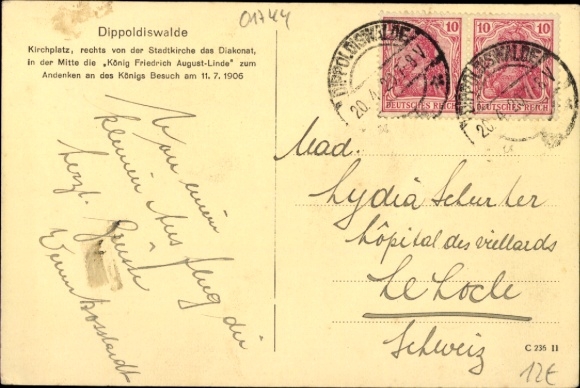 01744
Dippoldiswalde
Kirchplatz, rechts von der Stadtkirche das Diakonat,
in der Mitte die „König Friedrich August-Linde" zum
Andenken an des Königs Besuch am 11. 7. 1906
10 10
DEUTSCHES REICH DEUTSCHES REICH
DIPPOLDISWALDE
20.4.
DIPPOLDISWALDE
20.4.
Von einem
kleinen Ausflug die
herzl. Grüsse
Mad.
Lydia Schurter
hôpital des vieillards
Le Locle
Schweiz
C 235 II
12€